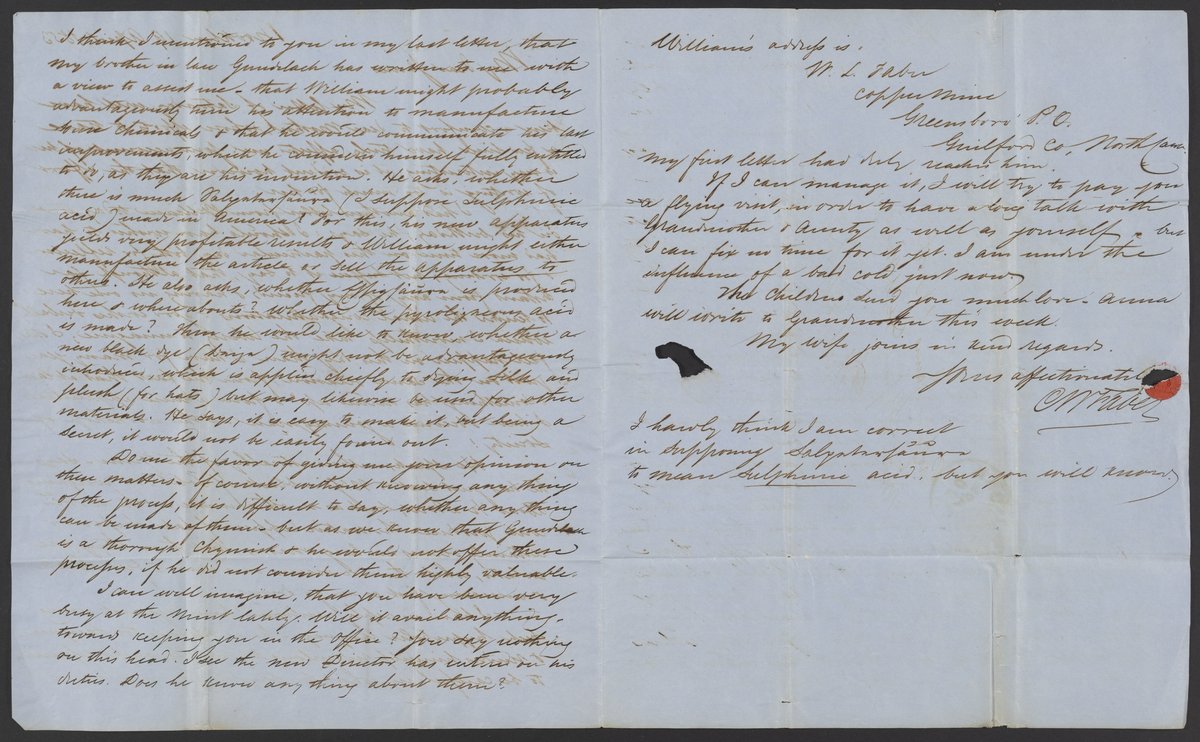 I think I mentioned to you in my last letter, that
my brother in law Gundlach has written to me with
a view to assist me - that William might probably
advantageously turn his attention to manufacture
some chemicals & that he would communicate his last
improvements, which he considered himself fully entitled
to do, as they are his invention. He asks, whether
there is much (I suppose Sulphuric
acid) made in America? For this, his new apparatus
yields very profitable results & William might either
manufacture the article or sell the apparatus to
others. He also asks, whether Essigsäure is produced
here & whereabouts? Whether the pyroligneous acid
is made? Then he would like to know, whether a
new black dye might not be advantageously
introduced, which is applied chiefly to dying silk and
plush (for hats) but may likewise be used for other
materials. He says, it is easy to make it, but being a
secret, it would not be easily found out.
Do me the favor of giving me your opinion on
these matters - of course, without knowing any thing
of the process, it is difficult to say, whether any thing
can be made of them - but as we know that Gundlach
is a thorough Chymist & he would not offer these
processes, if he did not consider them highly valuable.
I can well imagine, that you have been very
busy at the Mint lately. Will it avail anything
towards keeping you in the office? You say nothing
on this head. I see the new Director has entered on his
duties. Does he know any thing about them?
William's address is.
W. L. Faber
Copper Mine
Greensboro' P.O.
Guilford Co, North Caro.
My first letter had duly reached him.
If I can manage it, I will try to pay you
a flying visit, in order to have a long talk with
Grandmother & Aunty as well as yourself - but
I can fix no time for it yet. I am under the
influence of a bad cold just now
The Children send you much love - Anna
will write to Grandmother this week.
My wife joins in kind regards.
Yours affectionately
CW Faber
I hardly think I am correct
in supposing
to mean Sulphuric acid, but you will know.